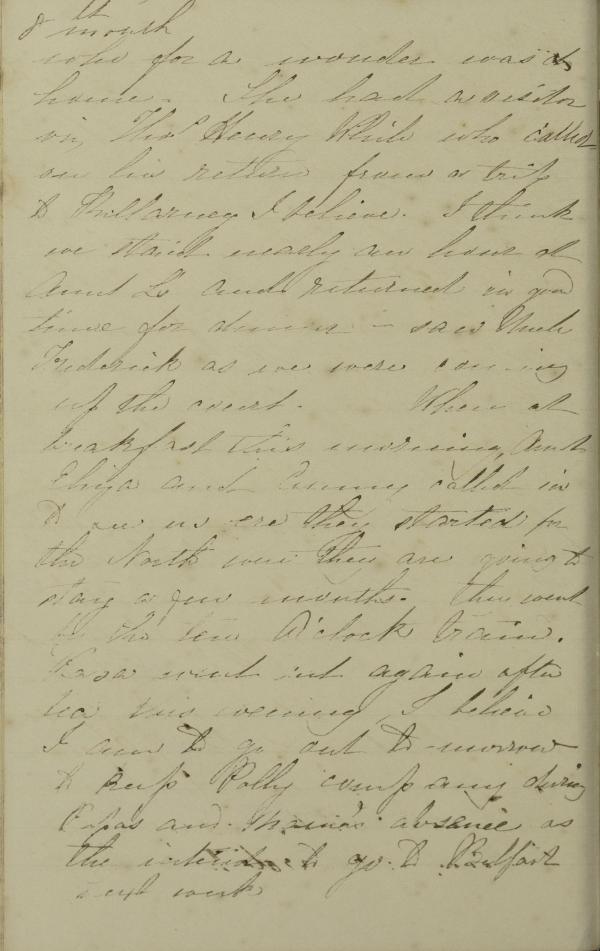 8th month
who for a wonder was at
home. She had a visitor
in, Thos Henry White who called
on his return from a trip
to Killarney I believe. I think
we staid nearly an hour at
Aunt L's and returned in good
time for dinner - saw Uncle
Frederick as we were coming
up the court. When at
breakfast this morning, Aunt
Eliza and Emmy called in
to see us ere they started for
the North where they are going to
stay a few months. They went
by the ten O'clock train.
went out again after
tea this evening, I believe
I am to go out to-morrow
to keep Polly company during
Papa's and Mama's absence as
the intend to go to Belfast
next week